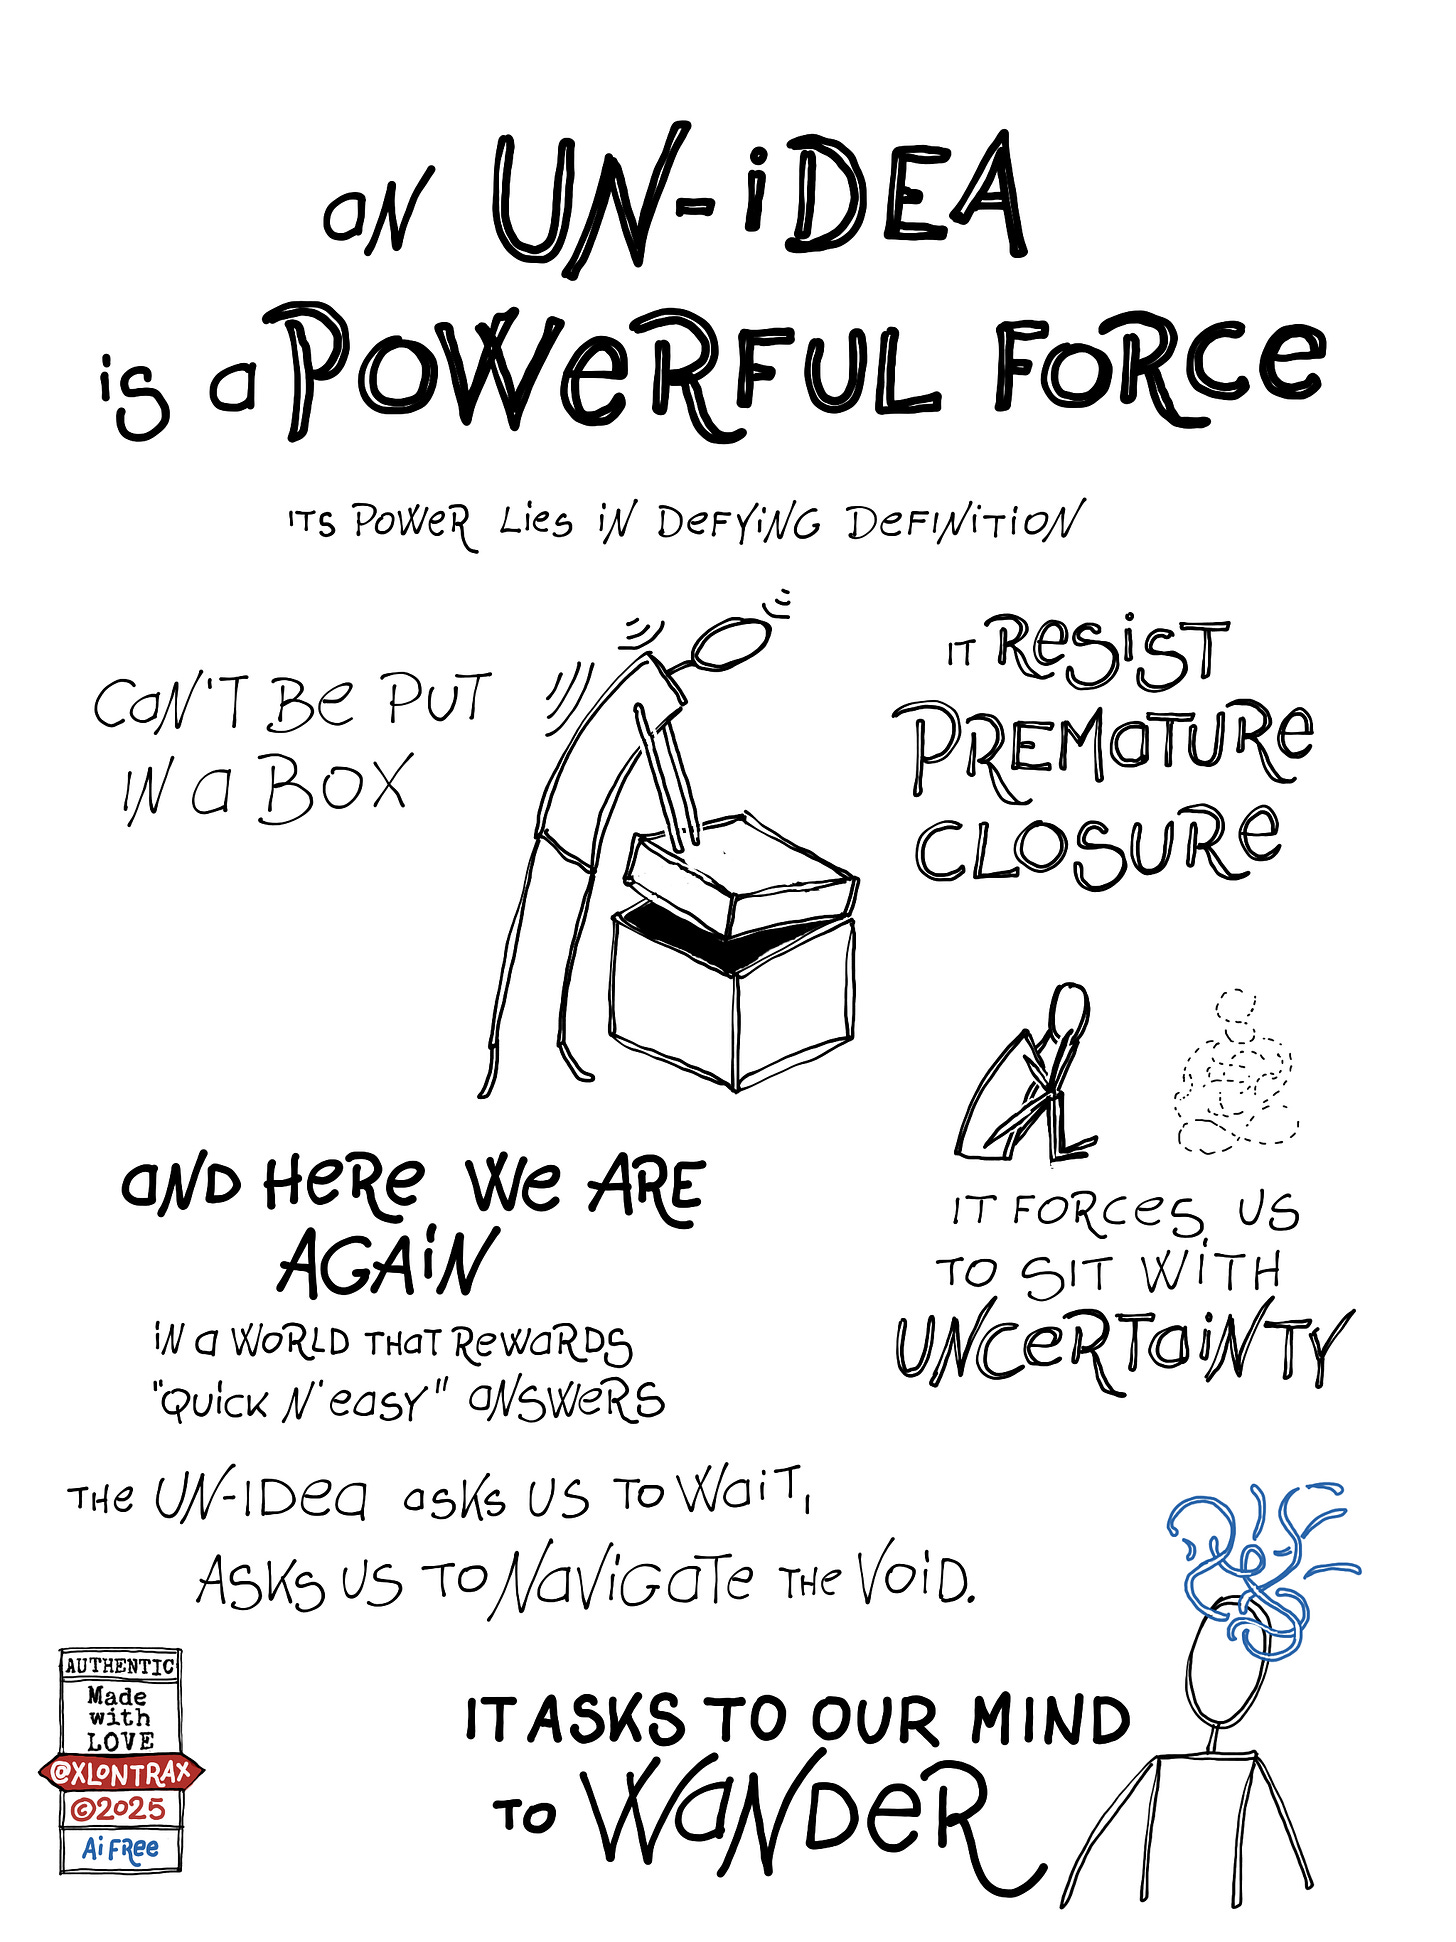 aN UN-iDEA
is a POWeRFUL FORCe
ITS POWeR Lies iN DeFYiNG DeFINiTiON
CaN'T Be PUT
IN a BOX
IT ResisT
PREMaTURe
CLOSURe
IT FORCes US
TO SIT WiTH
UNCeRTaiNTY
aND HeRe We ARE
AGAiN
iN a WORLD THaT ReWaRDS
"QUicK N' easy" aNSWeRS
THe UN-IDea asks US TO WaiT,
ASKs US TO NaViGaTe THe VOiD.
IT ASKS TO OUR MIND
TO WaNDeR
AUTHENTIC
Made
with
LOVE
@XLONTRAX
©2025
Ai FRee